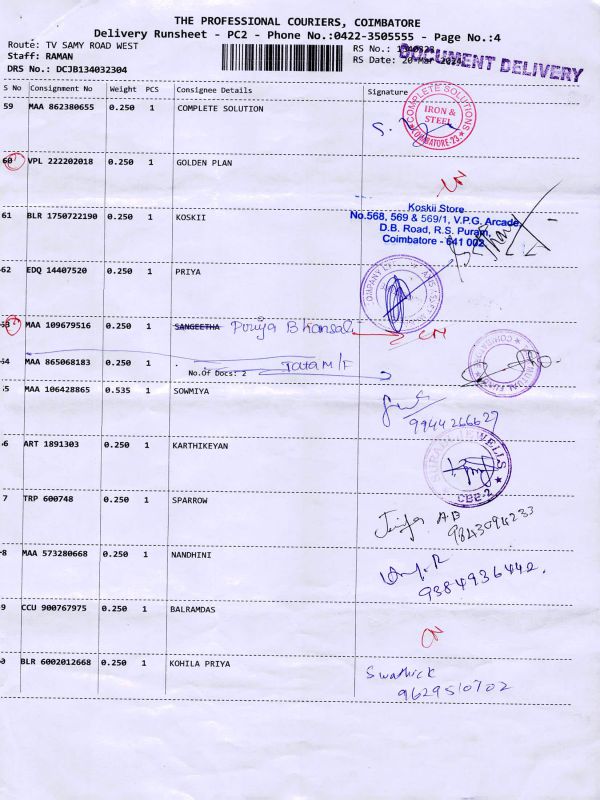 THE PROFESSIONAL COURIERS, COIMBATORE
Delivery Runsheet - PC2 - Phone No.:0422-3505555 - Page No.:4
Route: TV SAMY ROAD WEST
Staff: RAMAN
DRS No.: DCJB134032304
RS No.:
RS Date: 20-Mar-2024
DOCUMENT DELIVERY
S No Consignment No Weight PCS Consignee Details Signature
59 MAA 862380655 0.250 1 COMPLETE SOLUTION
COMPLETE SOLUTIONS
IRON &
STEEL
COIMBATORE-23
60 VPL 222202018 0.250 1 GOLDEN PLAN
61 BLR 1750722190 0.250 1 KOSKII
Koskii Store
No.568, 569 & 569/1, V.P.G. Arcade,
D.B. Road, R.S. Puram,
Coimbatore - 641 002
62 EDQ 14407520 0.250 1 PRIYA
63 MAA 109679516 0.250 1 SANGEETHA Pooja Bhansal
64 MAA 865068183 0.250 1 TATA M/F
No.Of Docs: 2
5 MAA 106428865 0.535 1 SOWMIYA
9944266627
6 ART 1891303 0.250 1 KARTHIKEYAN
CBE-2
7 TRP 600748 0.250 1 SPARROW
9843094233
8 MAA 573280668 0.250 1 NANDHINI
9384936442.
9 CCU 900767975 0.250 1 BALRAMDAS
0 BLR 6002012668 0.250 1 KOHILA PRIYA
Swathick
9629510702